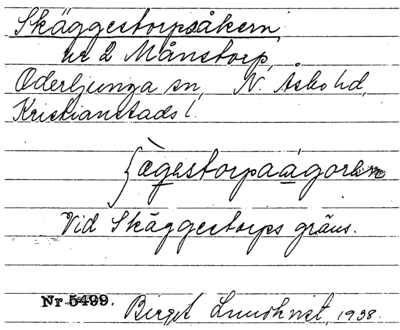 Skäggestorpsåkern,
nr 2 Månstorp,
Oderljunga sn, N. Åsbo hd,
Kristianstads l.
Vid Skäggestorps gräns.
Nr 5499. Birgit Lundkvist, 1938.